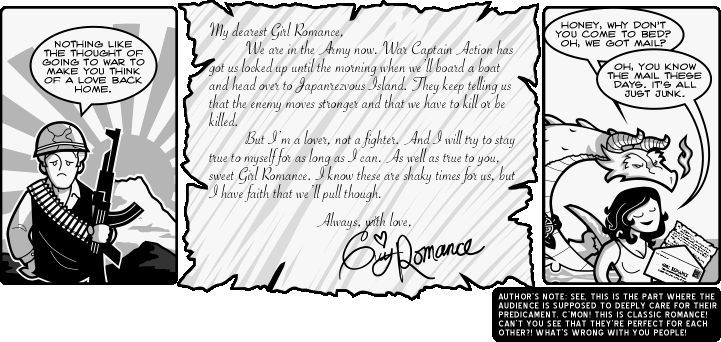 NOTHING LIKE
THE THOUGHT OF
GOING TO WAR TO
MAKE YOU THINK
OF A LOVE BACK
HOME.
My dearest Girl Romance,
We are in the Army now. War Captain Action has
got us locked up until the morning when we'll board a boat
and head over to Japanrezvous Island. They keep telling us
that the enemy moves stronger and that we have to kill or be
killed.
But I'm a lover, not a fighter. And I will try to stay
true to myself for as long as I can. As well as true to you,
sweet Girl Romance. I know these are shaky times for us, but
I have faith that we'll pull though.
Always, with love,
Guy Romance
HONEY, WHY DON'T
YOU COME TO BED?
OH, WE GOT MAIL?
OH, YOU KNOW
THE MAIL THESE
DAYS. IT'S ALL
JUST JUNK.
AUTHOR'S NOTE: SEE, THIS IS THE PART WHERE THE
AUDIENCE IS SUPPOSED TO DEEPLY CARE FOR THEIR
PREDICAMENT. C'MON! THIS IS CLASSIC ROMANCE!
CAN'T YOU SEE THAT THEY'RE PERFECT FOR EACH
OTHER?! WHAT'S WRONG WITH YOU PEOPLE!